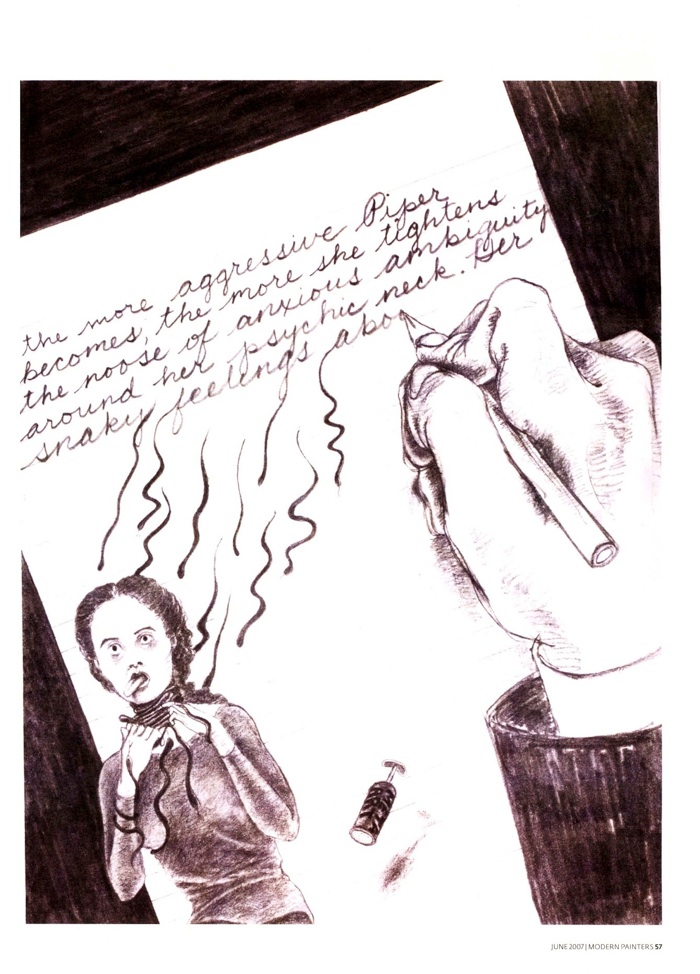 the more aggressive Piper
becomes, the more she tightens
the noose of anxious ambiguity
around her psychic neck. Her
snaky feelings abo
JUNE 2007 | MODERN PAINTERS 57